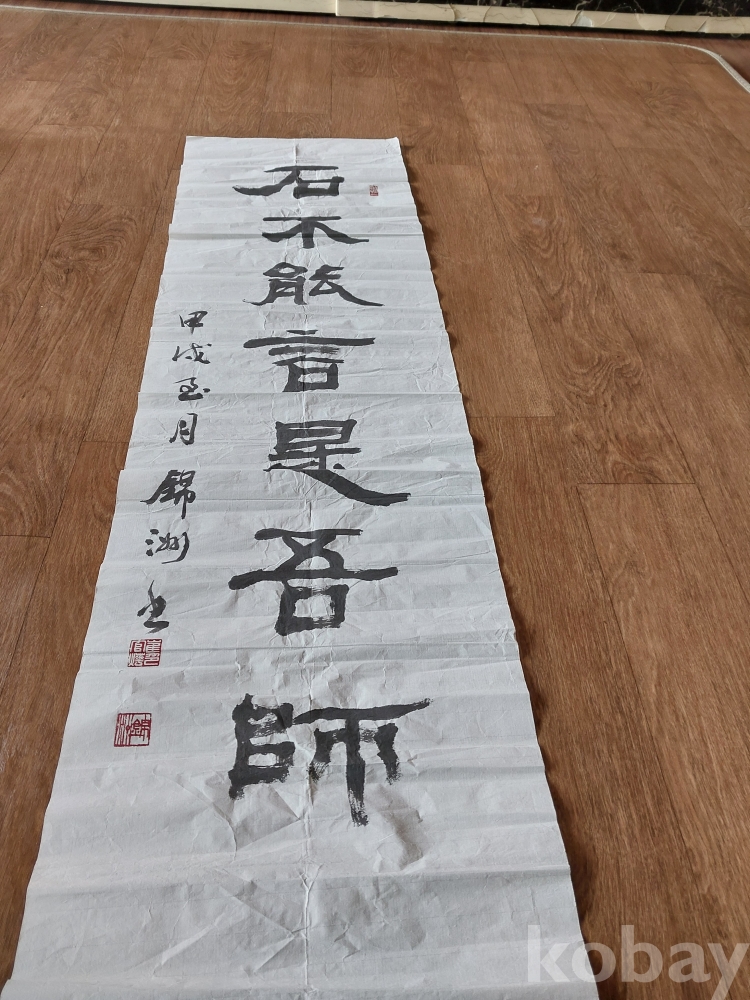 石不能言是吾師
甲戌至月 錦洲書
kobay